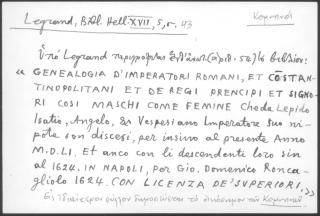 Legrand, Bibl. Hell. XVII, 5, σ. 43
Κομνηνοί
Ὑπὸ Legrand περιγράφεται βιβλίον:
« GENEALOGIA D'IMPERATORI ROMANI, ET COSTAN-
TINOPOLITANI ET DE REGI PRENCIPI ET SIGNO-
RI COSI MASCHI COME FEMINE Che da Lepido
Isatio, Angelo, & Vespesiano Imperatore suo ni-
pote son discesi, per insino al presente Anno
M.D.LI. Et anco con li descendenti loro sin
al 1624. IN NAPOLI, per Gio. Domenico Ronca-
gliolo 1624. CON LICENZA DE' SUPERIORI. »
Εἰς φύλλον τὸ τῶν Κομνηνῶν